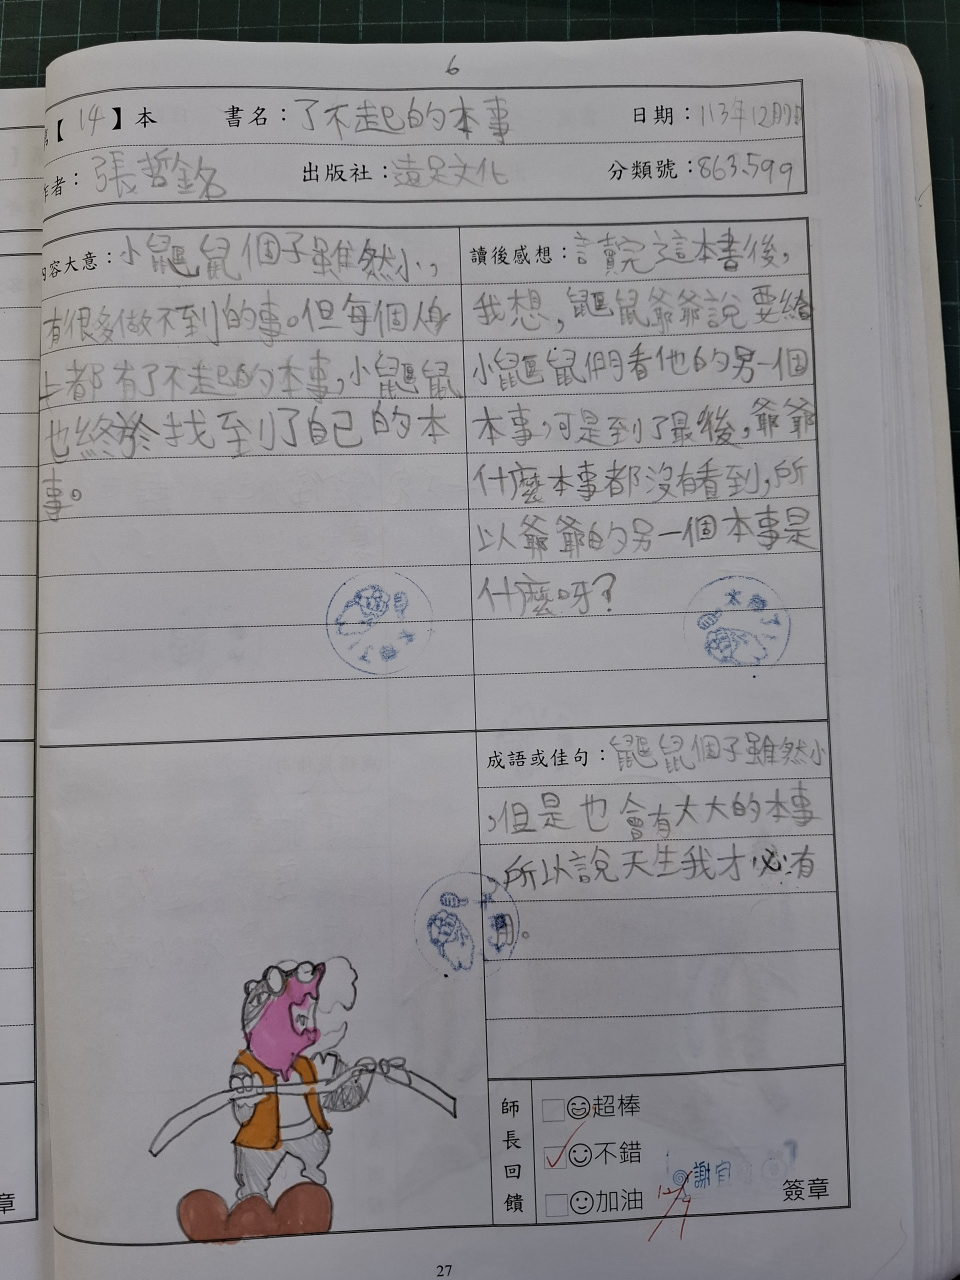 6
【14】本 書名：了不起的本事 日期：113年12月7日
作者：張哲銘 出版社：遠足文化 分類號：863.599
內容大意：小鼴鼠個子雖然小，
有很多做不到的事。但每個人身
上都有了不起的本事，小鼴鼠
也終於找到了自己的本
事。
讀後感想：讀完這本書後，
我想，鼴鼠爺爺說要給
小鼴鼠們看他的另一個
本事，可是到了最後，爺爺
什麼本事都沒有看到，所
以爺爺的另一個本事是
什麼呀？
成語或佳句：鼴鼠個子雖然小
，但是也會有大大的本事
，所以說天生我才必有
用。
師長回饋
超棒
不錯
加油
謝宜
12/9
簽章
章
27